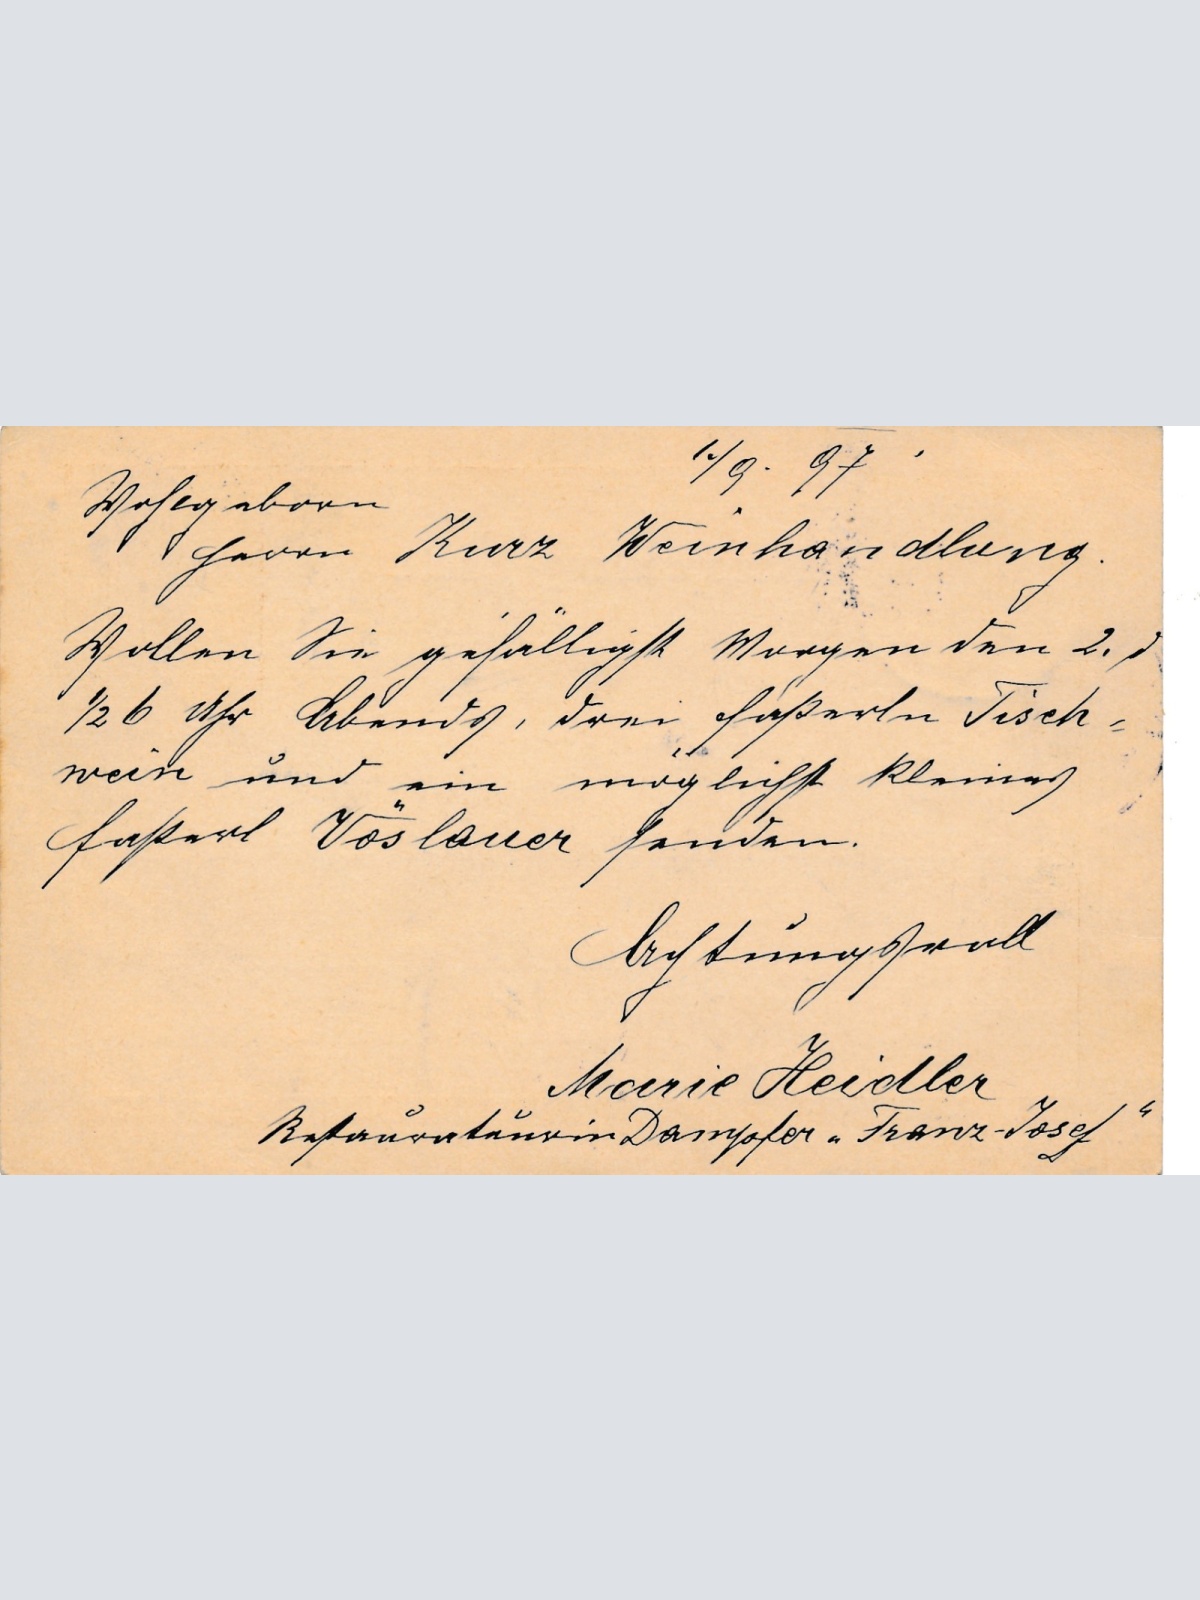 1./9. 97
Wohlgeborn
Herrn Kurz Weinhandlung.
Wollen Sie gefälligst Morgen den 2. d
1/2 6 Uhr Abends, drei Faßerln Tisch-
wein und ein möglichst kleines
Faßerl Vöslauer senden.
Achtungsvoll
Marie Heidler
Restaurateurin Dampfer „Franz-Josef“